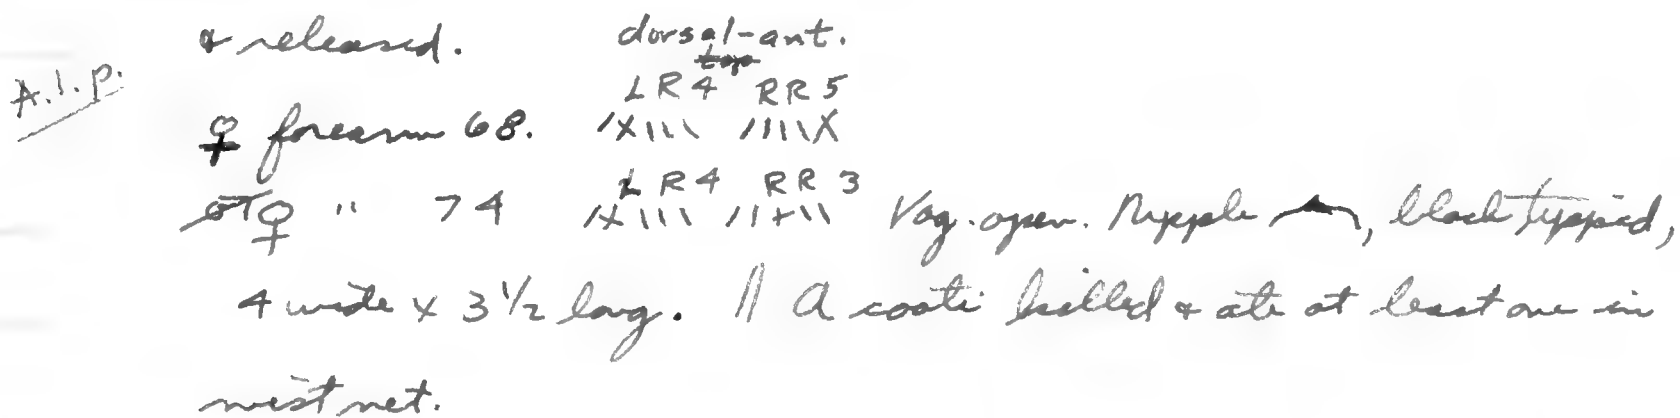 & released. dorsal-ant.
top
A.l.p. L R 4 R R 5
♀ forearm 68. /X\\\ ////X
L R 4 R R 3
♀ " 74 /X\\\ //+\\ Vag. open. Nipple , black tipped,
4 wide x 3 1/2 long. // A coati killed & ate at least one in
mist net.